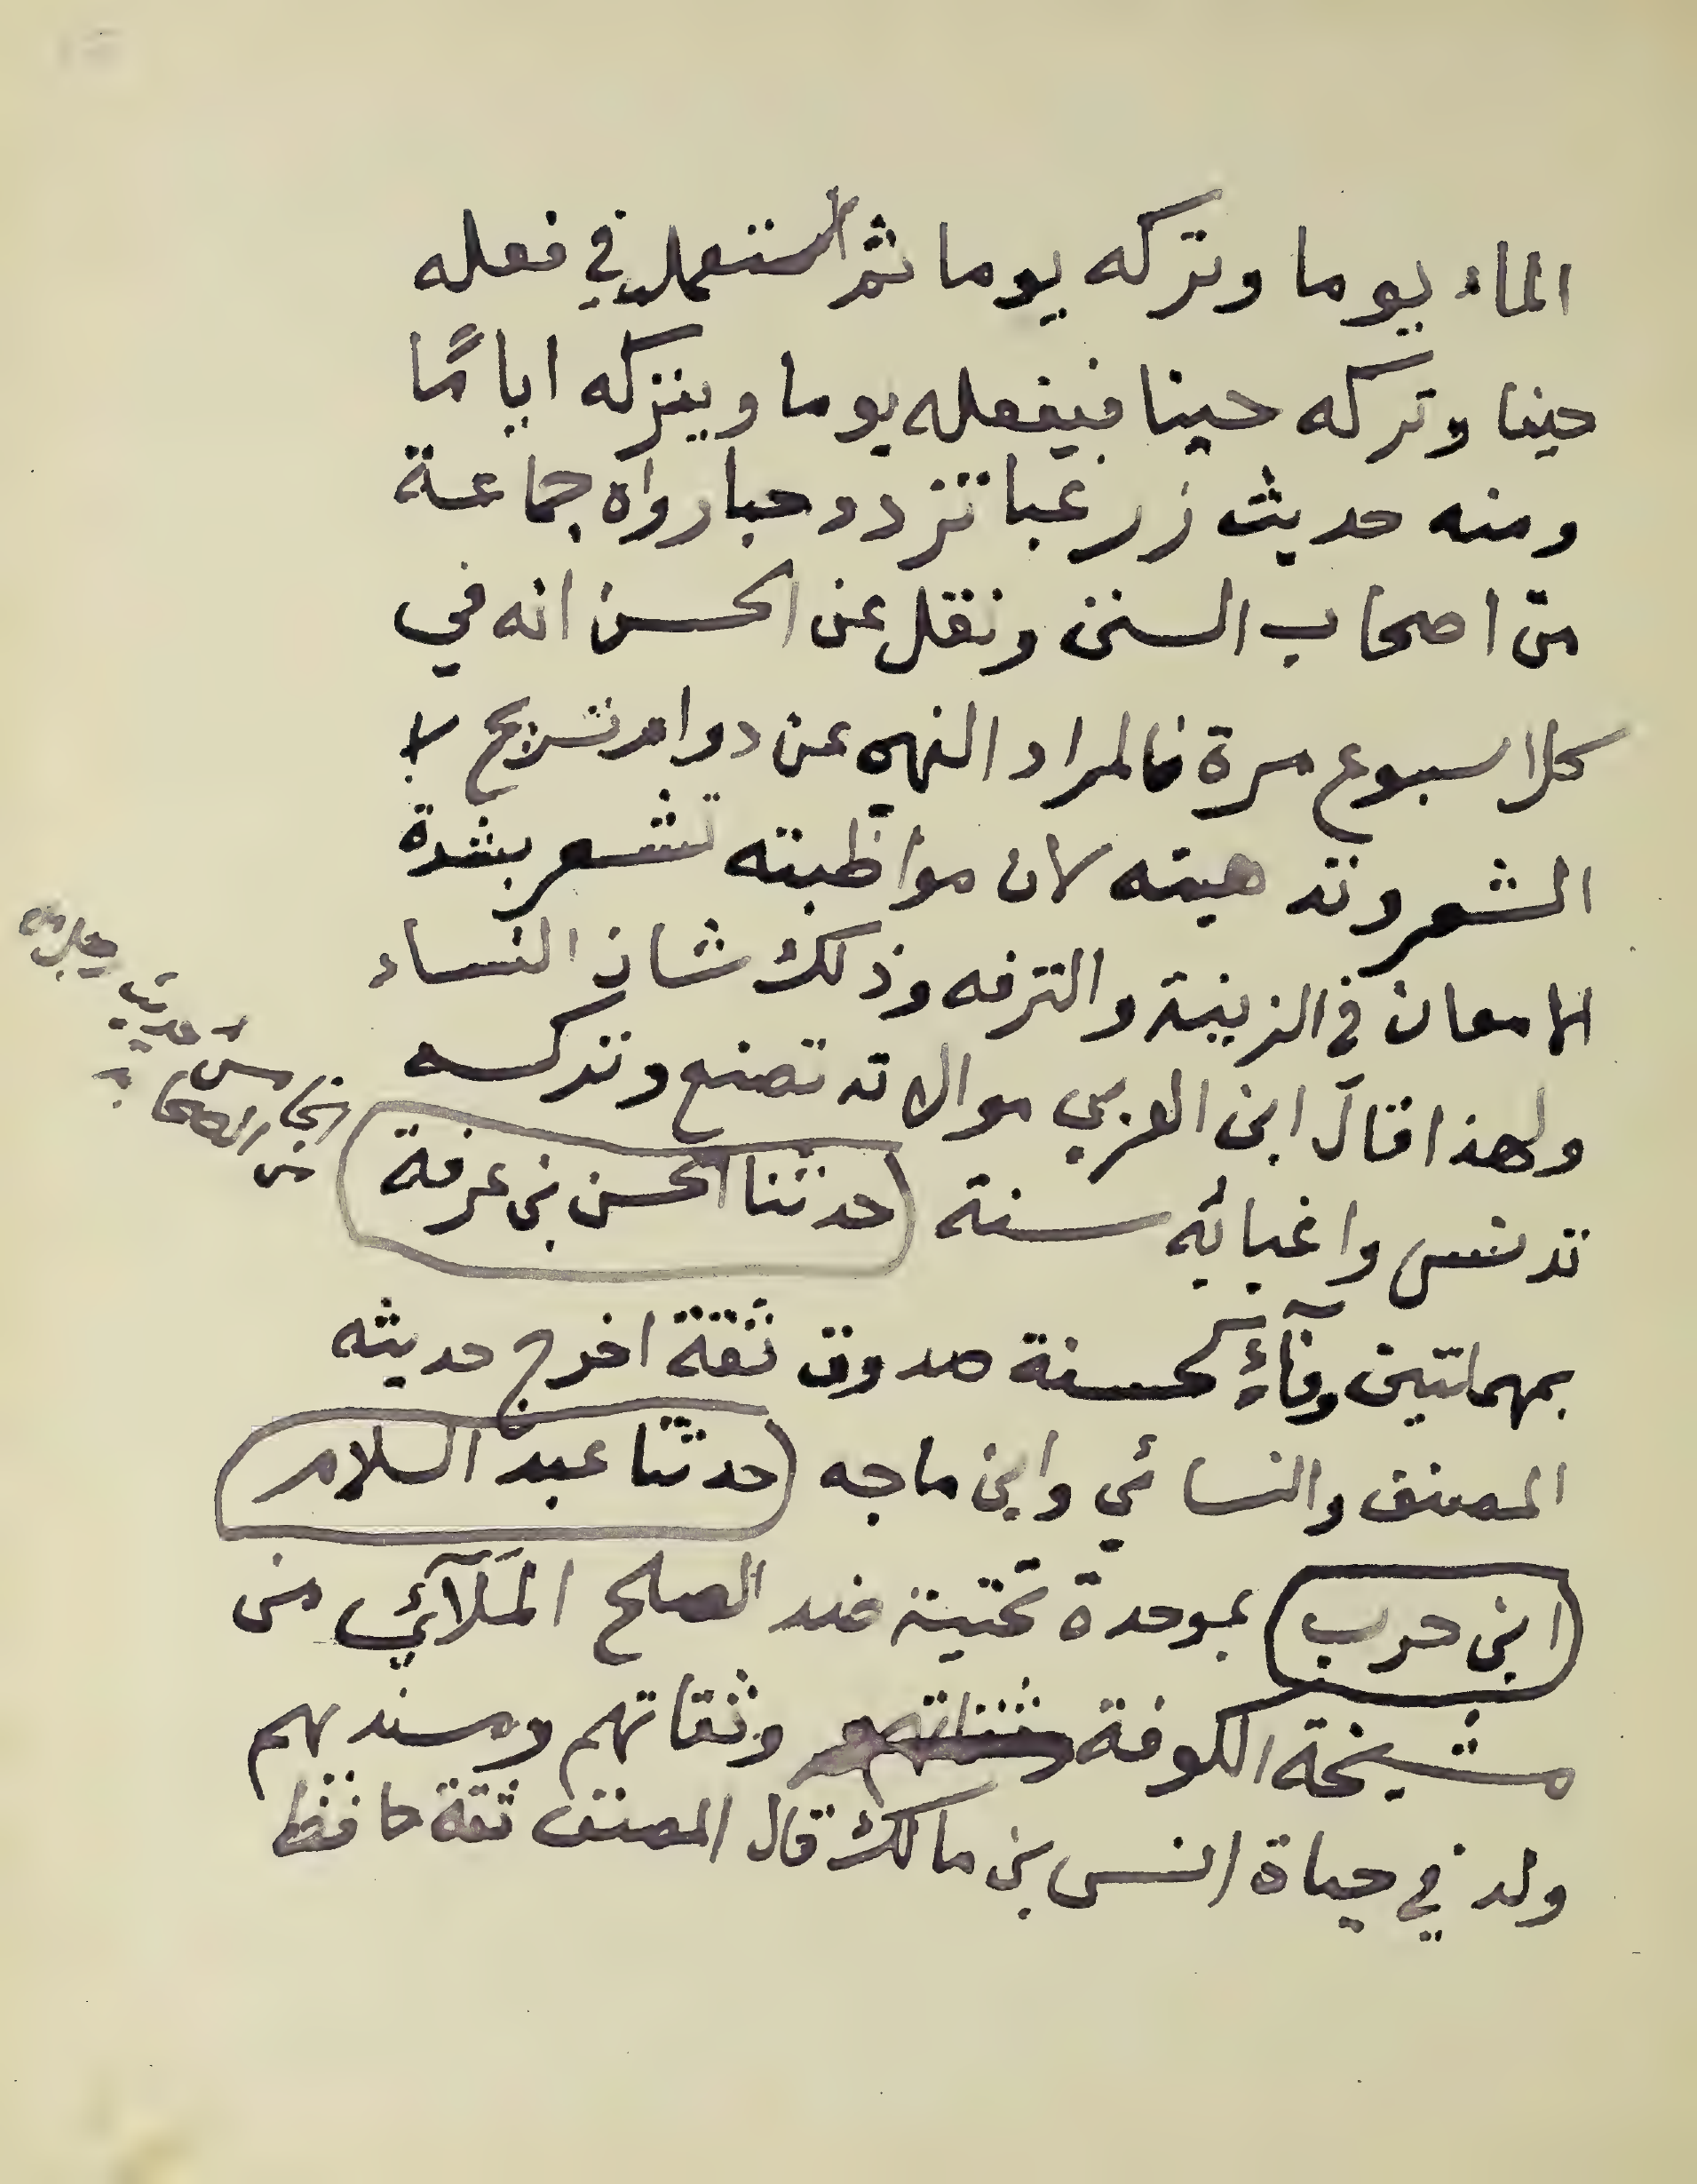 الماء يوما وتركه يوما ثم استعمل في فعله
حينا وتركه حينا فيفعله يوما ويتركه اياما
ومنه حديث زر غبا تزدد حبا رواه جماعة
من اصحاب السنن ونقل عن الحسن انه في
كل اسبوع مرة فالمراد النهي عن دوام تسريح
الشعر وتدهينه لان مواظبته تشعر بشدة
الامعان في الزينة والترفه وذلك شان النساء
ولهذا قال ابن العربي موالاته تصنع وتركه
تدنس واغبابه سنة (حدثنا الحسن بن عرفة)
بمهملتين وفآء كحسنة صدوق ثقة اخرج حديثه
المصنف والنسائي وابن ماجه (حدثنا عبد السلام
ابن حرب) بموحدة تحتية ضد الصلح المَلَآئي من
مشيخة الكوفة وثقاتهم ومسندهم
ولد في حياة انس بن مالك قال المصنف ثقة حافظ
حديث
الخامس
من الصحا